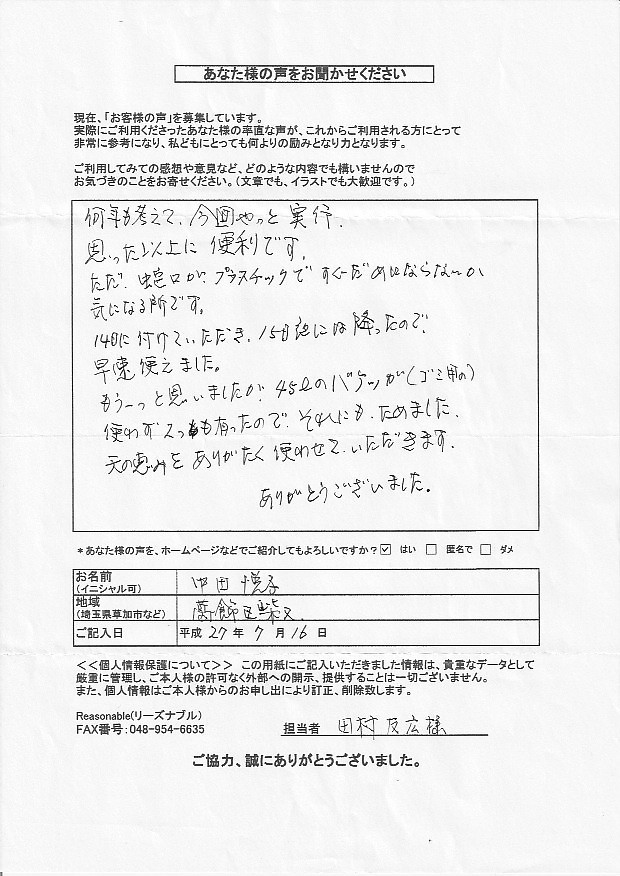 あなた様の声をお聞かせください
現在、「お客様の声」を募集しています。
実際にご利用くださったあなた様の率直な声が、これからご利用される方にとって
非常に参考になり、私どもにとっても何よりの励みとなり力となります。
ご利用してみての感想や意見など、どのような内容でも構いませんので
お気づきのことをお寄せください。(文章でも、イラストでも大歓迎です。)
何年も考えて、今回やっと実行、
思った以上に便利です。
ただ、蛇口が、プラスチックですぐだめにならないか
気になる所です。
14日に付けていただき、15日夜には降ったので、
早速使えました。
もう一つと思いましたが、45ℓのバケツが(ゴミ用の)
使わず2つも有ったので、それにも、ためました、
天の恵みをありがたく使わせていただきます、
ありがとうございました。
*あなた様の声を、ホームページなどでご紹介してもよろしいですか? ☑ はい □ 匿名で □ ダメ
お名前 中田 悦子
(イニシャル可)
地域 葛飾区柴又
(埼玉県草加市など)
ご記入日 平成 27 年 7 月 16 日
<<個人情報保護について>> この用紙にご記入いただきました情報は、貴重なデータとして
厳重に管理し、ご本人様の許可なく外部への開示、提供することは一切ございません。
また、個人情報はご本人様からのお申し出により訂正、削除致します。
Reasonable(リーズナブル)
FAX番号:048-954-6635 担当者 田村友広様
ご協力、誠にありがとうございました。